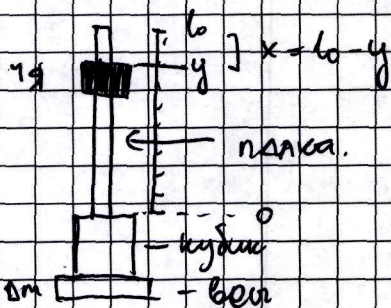 l₀
y ] x = l₀ - y
ЧЯ
планка.
0
- кубик
Δm - весы